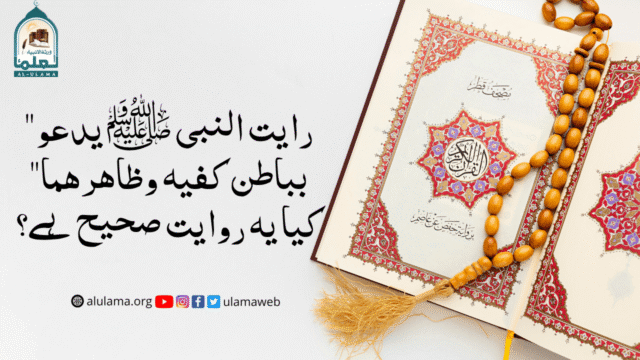 ورثة الأنبياء
العلماء
AL-ULAMA
"رایت النبی ﷺ یدعو
بباطن کفیه وظاهرهما"
کیا یہ روایت صحیح ہے؟
alulama.org ulamaweb
مصحف قطر
القرآن الكريم
برواية حفص عن عاصم